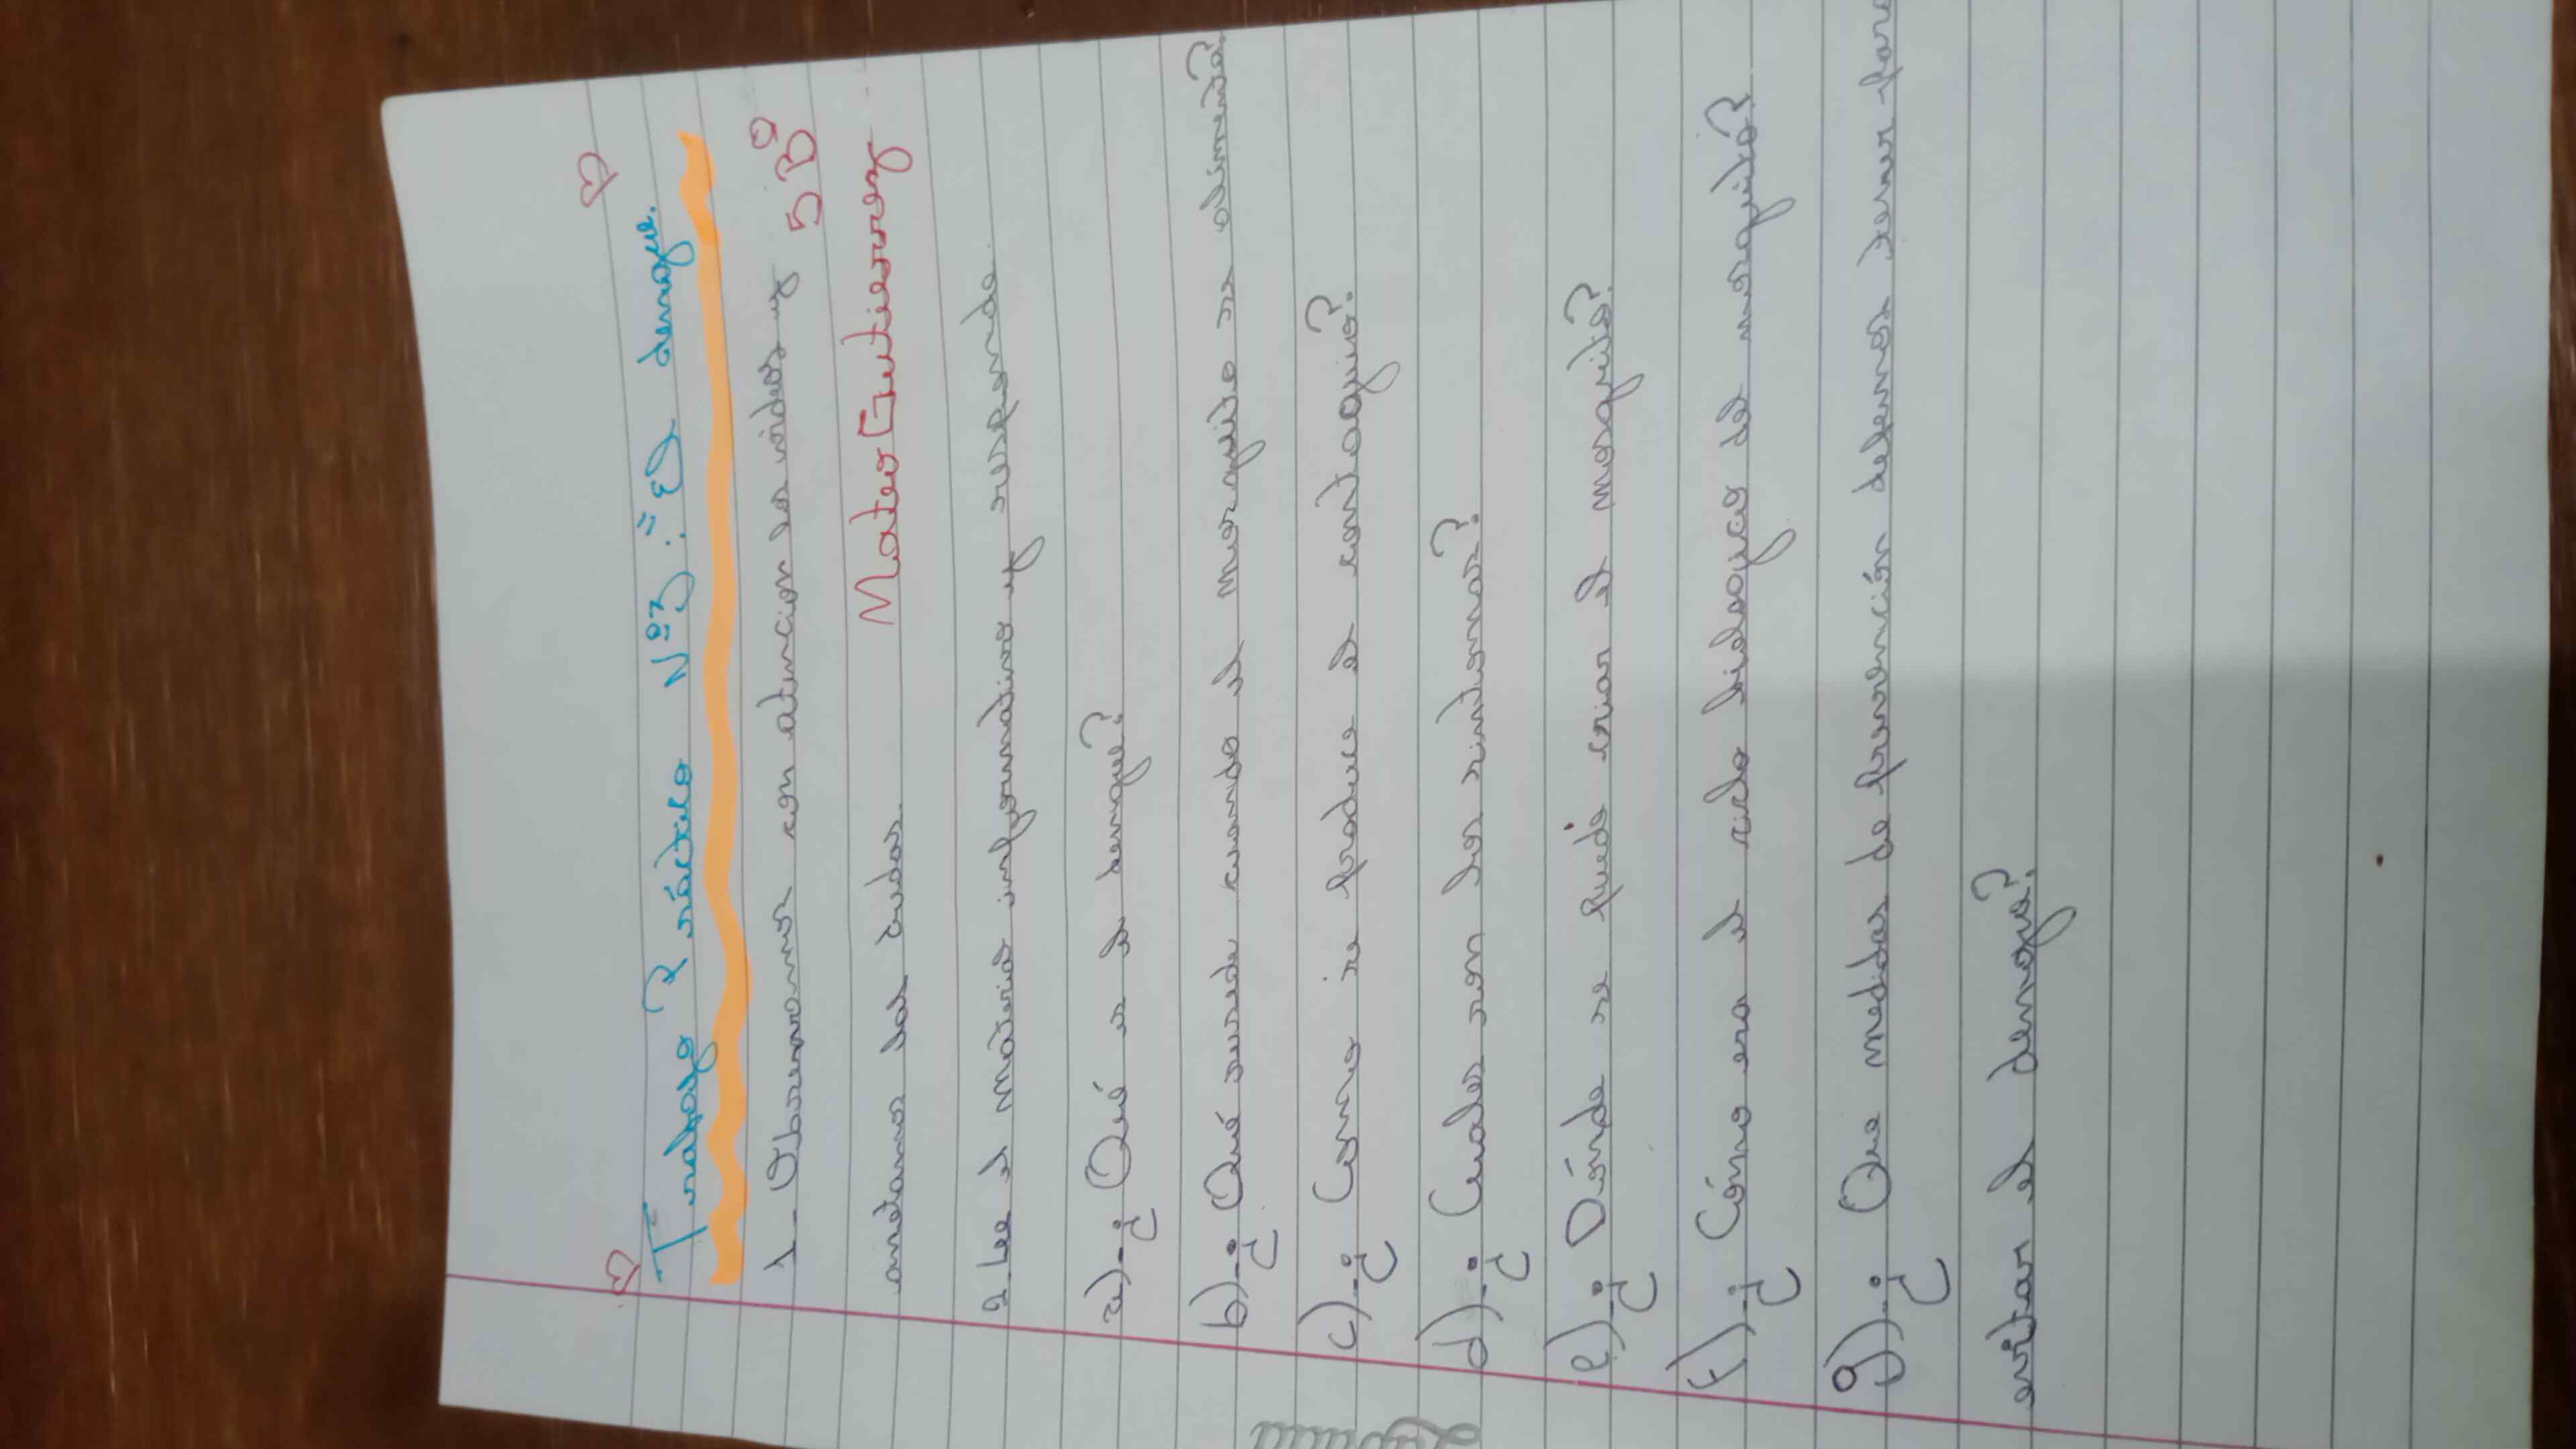 Trabajo Práctico Nº3: "El dengue.
1-Observamos con atencion los videos y 5Bº
anotamos los dudas. Mateo Gutierrez
2 Lee el material informativo y responde
a)-¿Qué es el dengue?
b)-¿Qué sucede cuando el mosquito se alimenta?
c)-¿Como se produce el contagio?
d)-¿Cuales son los sintomas?
e)-¿Dónde se puede criar el mosquito?
f)-¿Cómo era el ciclo biologico del mosquito?
g)-¿Que medidas de prevención debemos tener para
evitar el dengue?